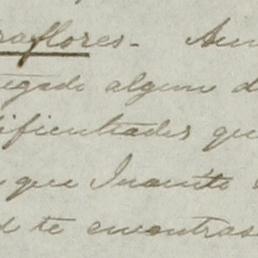 raflores.- Aun
egado algun d
ificultades qu
que Juanito
d te encontras